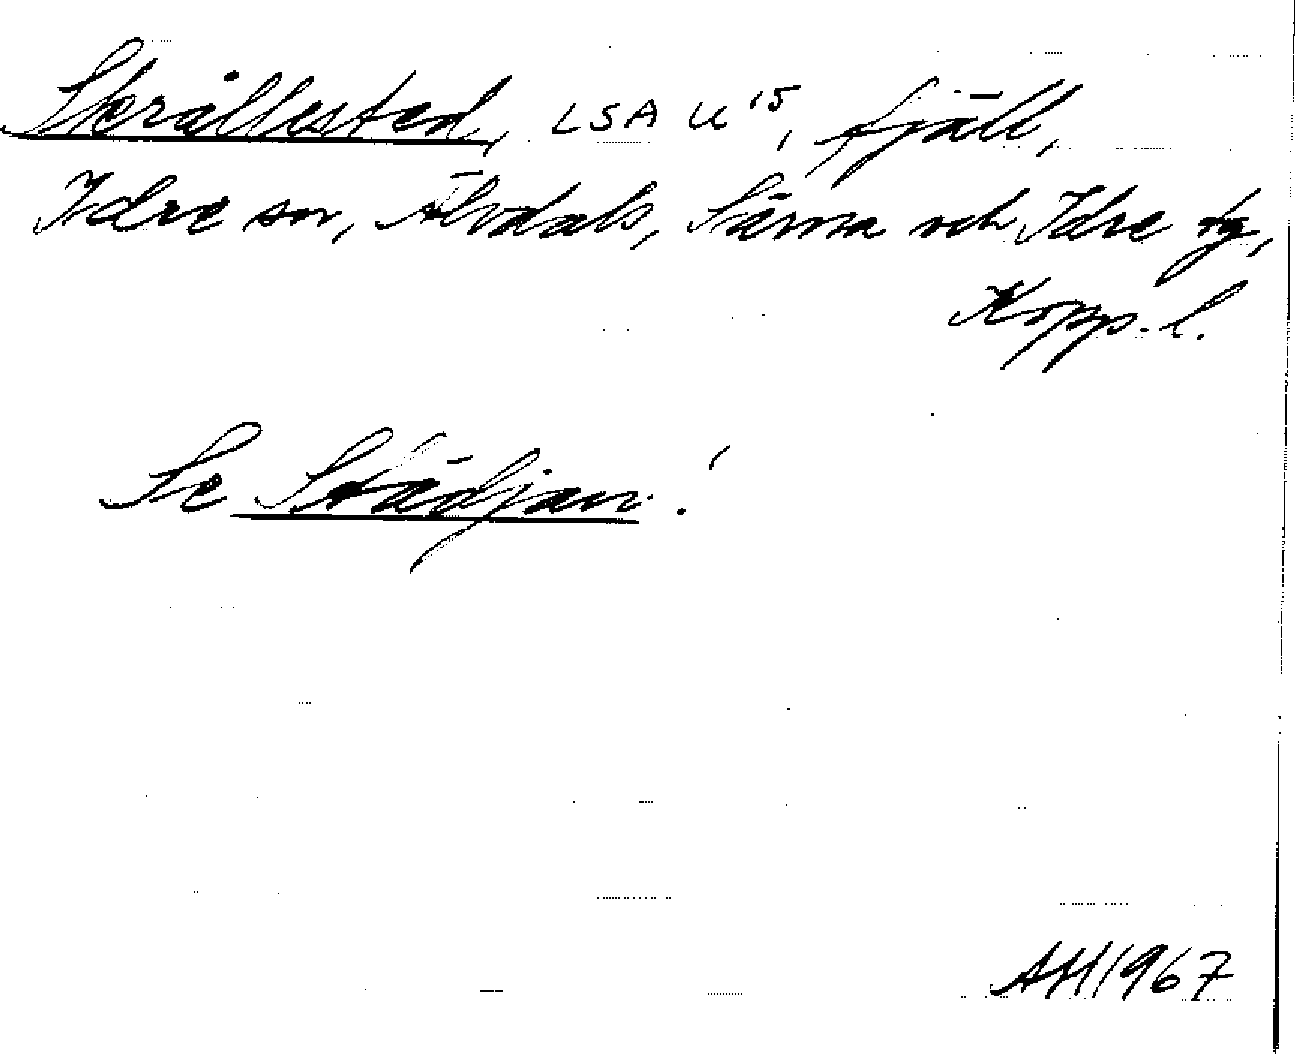 Skrållusted, LSA U 15, fjäll,
Idre sn, Älvdals, Särna och Idre tg,
Kopp. l.
Se Städjan!
AH 1967